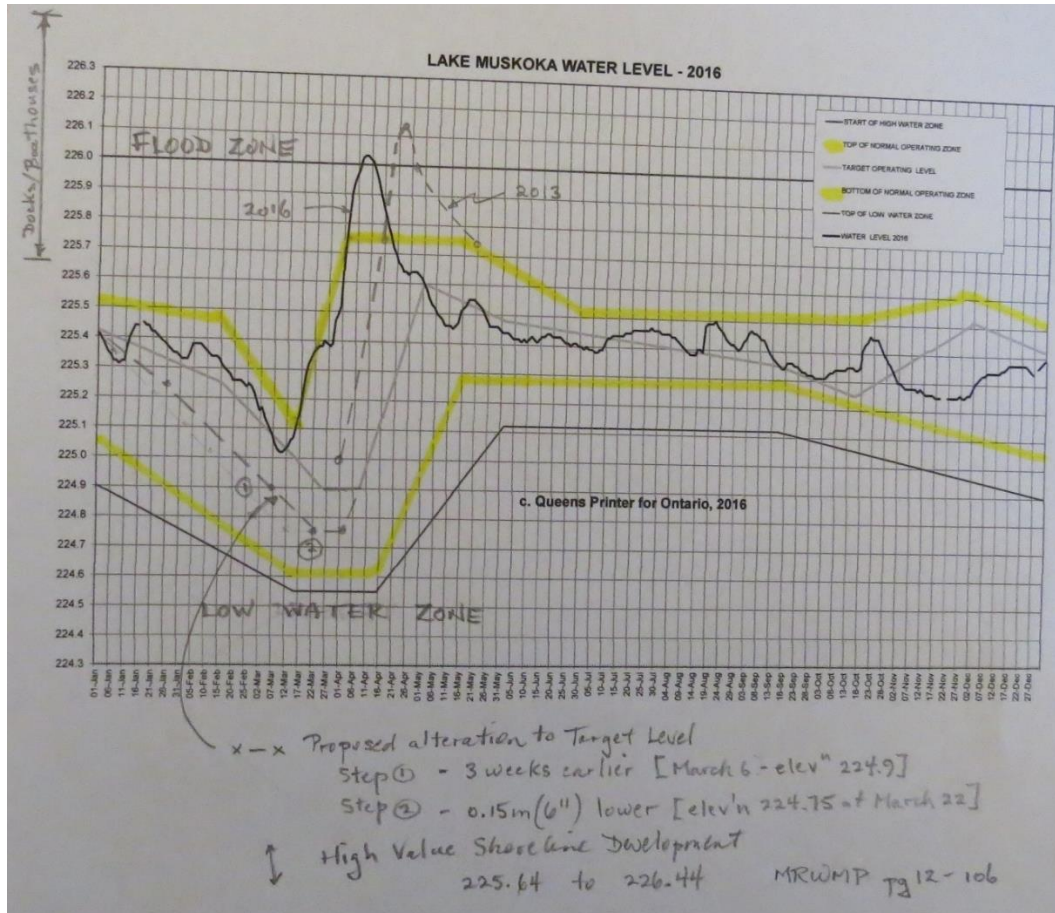 LAKE MUSKOKA WATER LEVEL - 2016
Docks/Boathouses
226.3
226.2
226.1
226.0
225.9
225.8
225.7
225.6
225.5
225.4
225.3
225.2
225.1
225.0
224.9
224.8
224.7
224.6
224.5
224.4
224.3
START OF HIGH WATER ZONE
TOP OF NORMAL OPERATING ZONE
TARGET OPERATING LEVEL
BOTTOM OF NORMAL OPERATING ZONE
TOP OF LOW WATER ZONE
WATER LEVEL 2016
FLOOD ZONE
2016
2013
①
②
c. Queens Printer for Ontario, 2016
LOW WATER ZONE
01-Jan 06-Jan 11-Jan 16-Jan 21-Jan 26-Jan 31-Jan 05-Feb 10-Feb 15-Feb 20-Feb 25-Feb 02-Mar 07-Mar 12-Mar 17-Mar 22-Mar 27-Mar 01-Apr 06-Apr 11-Apr 16-Apr 21-Apr 26-Apr 01-May 06-May 11-May 16-May 21-May 26-May 31-May 05-Jun 10-Jun 15-Jun 20-Jun 25-Jun 30-Jun 05-Jul 10-Jul 15-Jul 20-Jul 25-Jul 30-Jul 04-Aug 09-Aug 14-Aug 19-Aug 24-Aug 29-Aug 03-Sep 08-Sep 13-Sep 18-Sep 23-Sep 28-Sep 03-Oct 08-Oct 13-Oct 18-Oct 23-Oct 28-Oct 02-Nov 07-Nov 12-Nov 17-Nov 22-Nov 27-Nov 02-Dec 07-Dec 12-Dec 17-Dec 22-Dec 27-Dec
x-x Proposed alteration to Target Level
Step ① - 3 weeks earlier [March 6 - elev" 224.9]
Step ② - 0.15m (6") lower [elev'n 224.75 at March 22]
High Value Shoreline Development
225.64 to 226.44 MRWMP pg 12-106